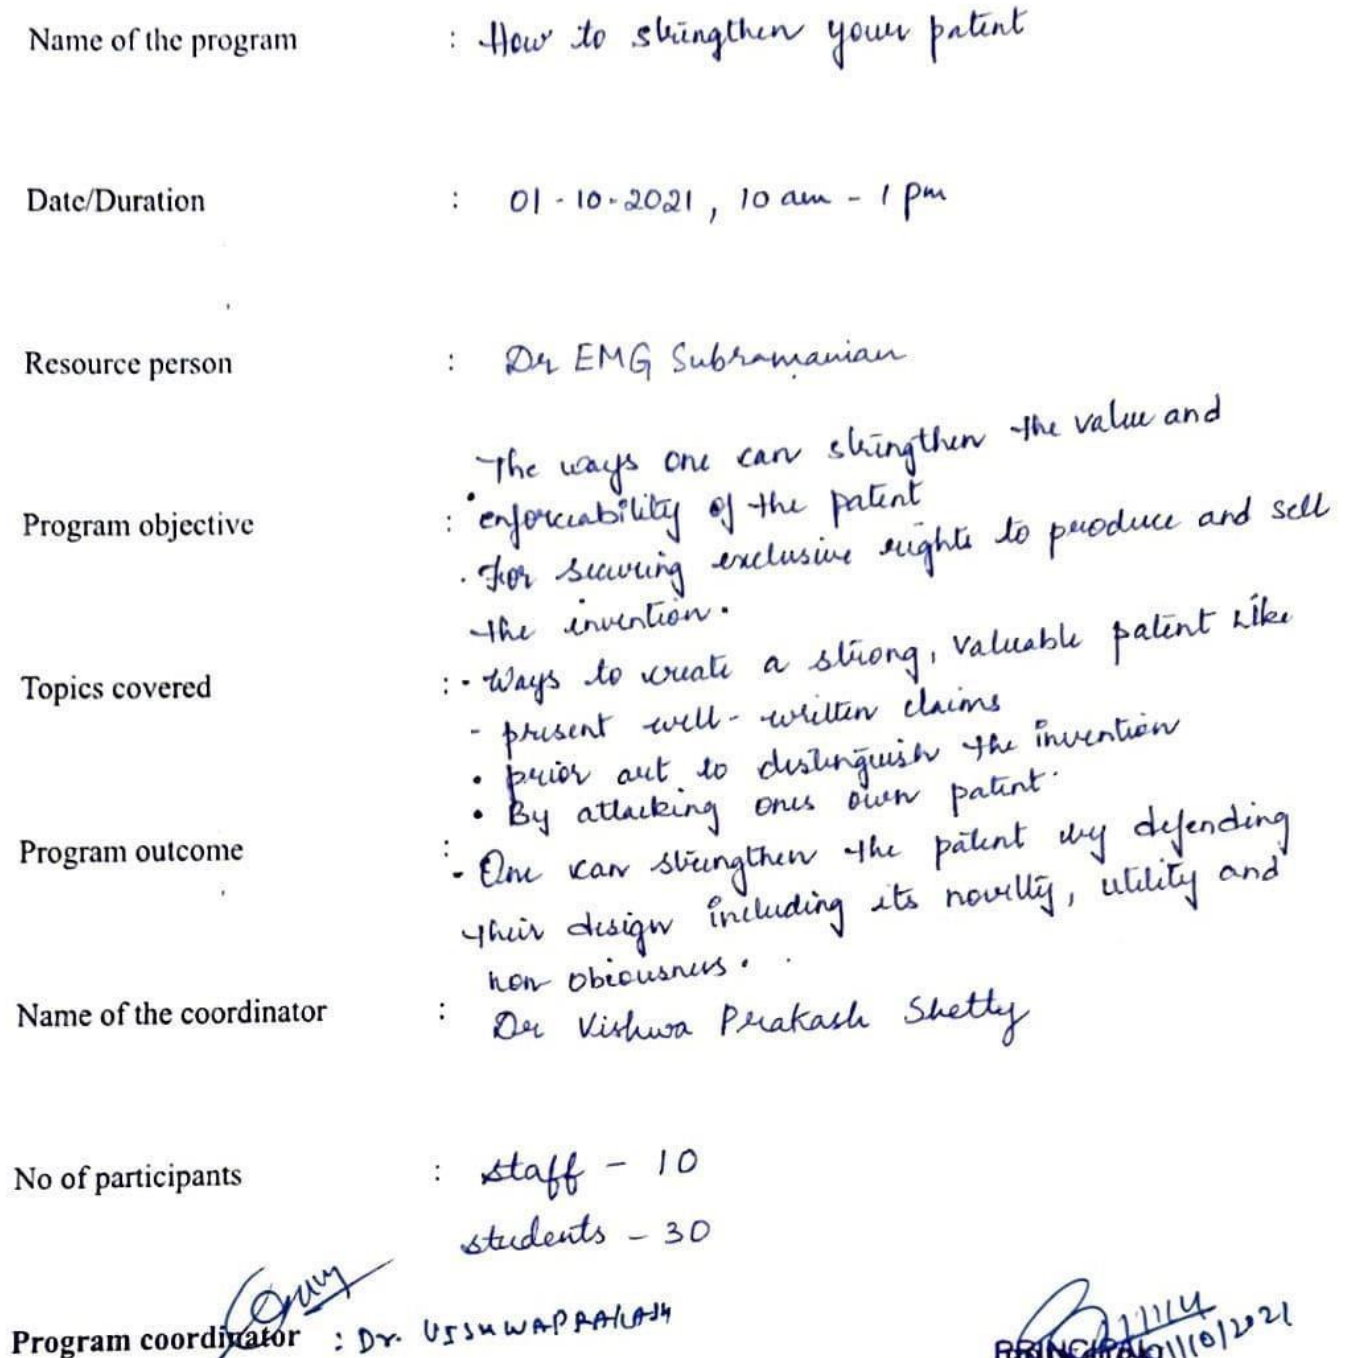 Name of the program : How to strengthen your patent
Date/Duration : 01-10-2021, 10 am - 1 pm
Resource person : Dr EMG Subramanian
· The ways one can strengthen the value and
Program objective : enforceability of the patent
· For securing exclusive rights to produce and sell
the invention.
Topics covered : - Ways to create a strong, valuable patent like
- present well-written claims
• prior art to distinguish the invention
• By attacking ones own patent.
Program outcome :
- One can strengthen the patent by defending
their design including its novelty, utility and
non obiousness.
Name of the coordinator : Dr Vishwa Prakash Shetty
No of participants : staff - 10
students - 30
Program coordinator : Dr. VISHWAPRAKASH
PRINCIPAL